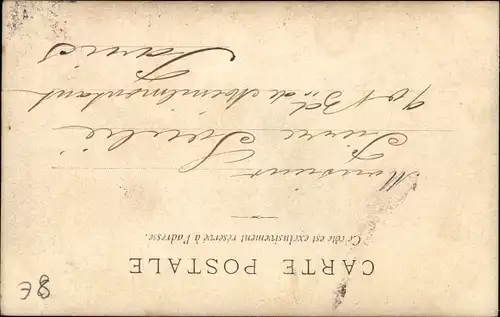 CARTE POSTALE
Ce côté est exclusivement réservé à l'adresse.
Monsieur
Pierre
90 Bd de Menilmontant
Paris
8E